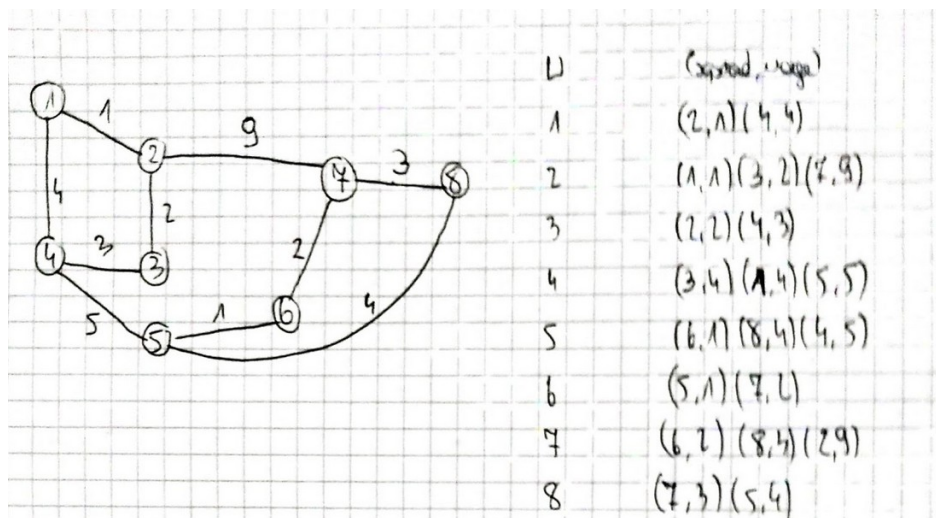 1
1
9
2
7
3
8
4
2
4
3
3
2
6
4
5
5
1
U (sąsiad, waga)
1 (2,1)(4,4)
2 (1,1)(3,2)(7,9)
3 (2,2)(4,3)
4 (3,4)(1,4)(5,5)
5 (6,1)(8,4)(4,5)
6 (5,1)(7,2)
7 (6,2)(8,3)(2,9)
8 (7,3)(5,4)